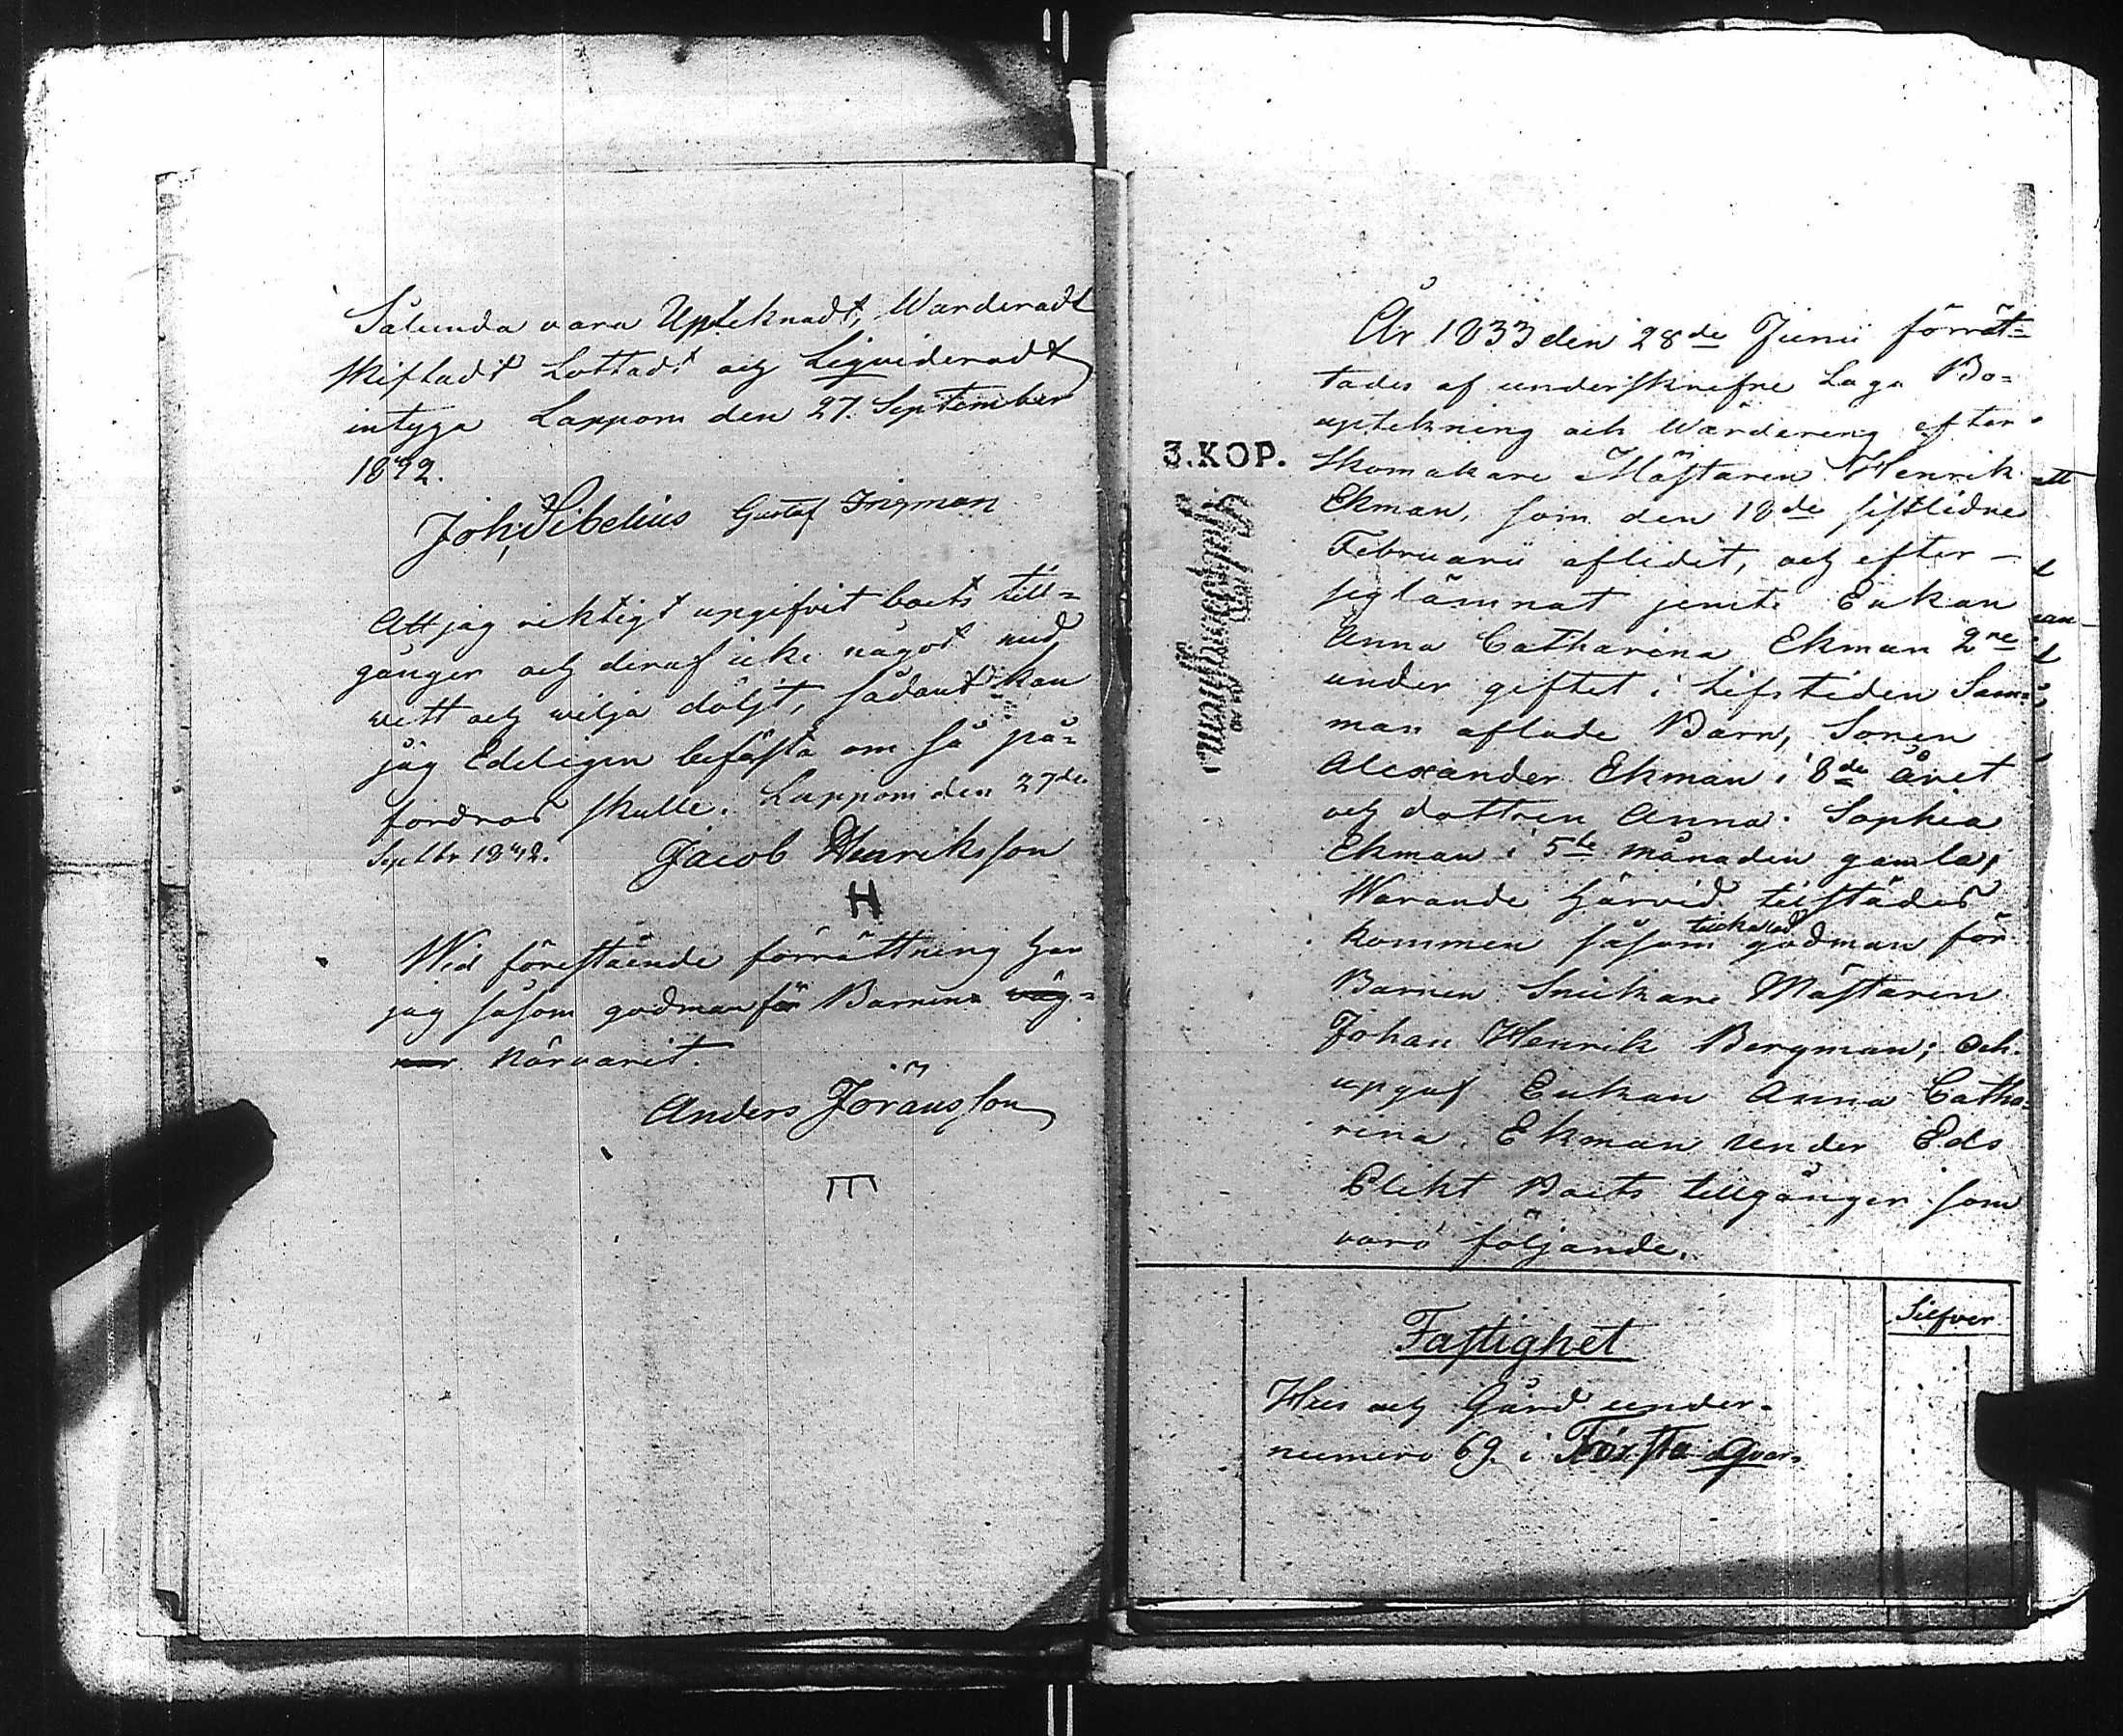 Sålunda vara Upteknadt, Warderadt
skiftadt Lottadt och Liqvideradt
intyga Lappom den 27. September
1832.
Joh. Sibelius Gustaf Ingman
Att jag riktigt upgifvit boets till-
gånger och deraf icke något med
vett och vilja döljt, sådant kan
jag Edeligen befästa om så på-
fordras skulle. Lappom den 27de
Septbr 1832.
Jacob Henriksson
H
Wid förestående förrättning har
jag såsom godman för Barnens väg-
nar närvarit.
Anders Jöransson
År 1833 den 28de Junii förrät-
tades af underskrefne Laga Bo-
uptekning och Wärdering efter
3.KOP.
Skomakare Mästaren Henrik
Ekman, som den 18de sistledne
Februarii aflidet, och efter-
seg lämnat jemte Enkan
Anna Catharina Ekman 2ne
under giftet i Lifstiden Sam-
man aflade Barn, Sonen
Alexander Ekman i 8de året
och dottren Anna Sophia
Ekman i 5te månaden gamla;
Warande härvid tillstädes
kommen såsom godman för
Barnen Snickare Mästaren
Johan Henrik Bergman; och
upgaf Enkan Anna Catha-
rina Ekman under Eds
Plikt Boets tillgånger som
voro följande.
Silfver
Fastighet
Hus och Gård under-
numero 69. i Första Qvar-